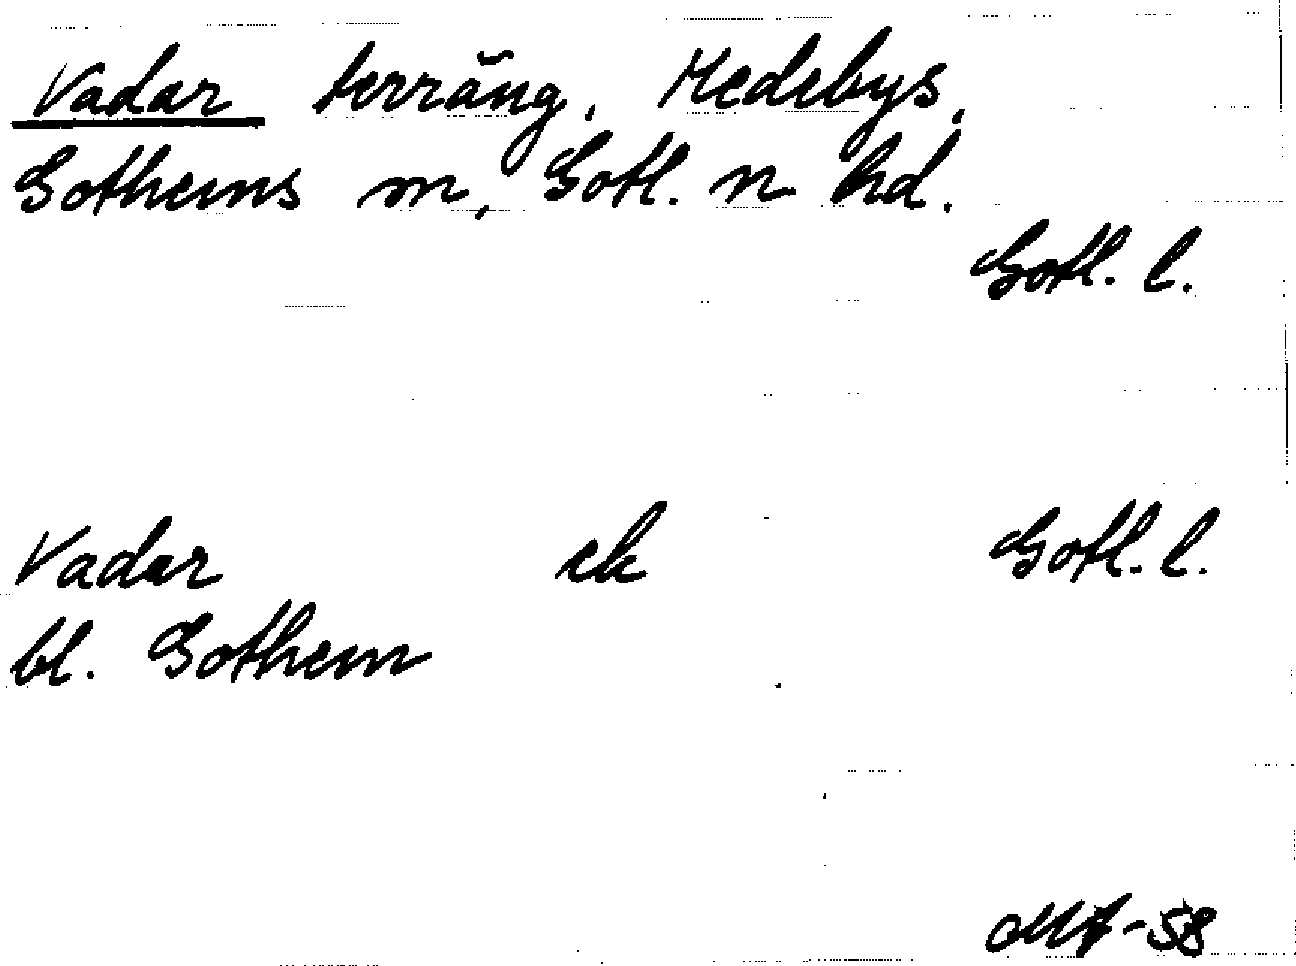 Vadar terräng, Medebys,
Gothems sn, Gotl. n hd.
Gotl. l.
Vadar ek Gotl. l.
bl. Gothem